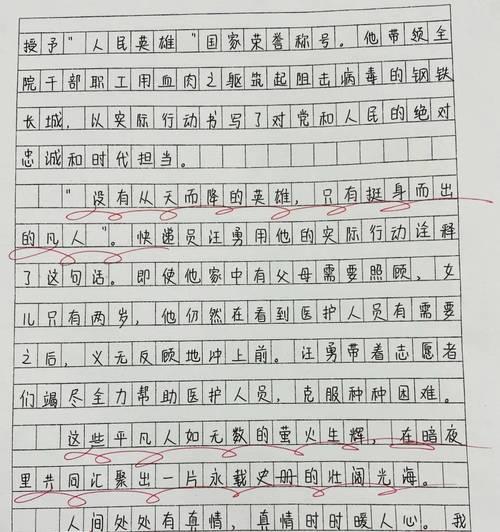 授予"人民英雄"国家荣誉称号。他带领全
院干部职工用血肉之躯筑起阻击病毒的钢铁
长城，以实际行动书写了对党和人民的绝对
忠诚和时代担当。
"没有从天而降的英雄，只有挺身而出
的凡人"。快递员汪勇用他的实际行动诠释
了这句话。即使他家中有父母需要照顾，女
儿只有两岁，他仍然在看到医护人员有需要
之后，义无反顾地冲上前。汪勇带着志愿者
们竭尽全力帮助医护人员，克服种种困难。
这些平凡人如无数的萤火生辉，在暗夜
里共同汇聚出一片永载史册的壮阔光海。
人间处处有真情，真情时时暖人心。我